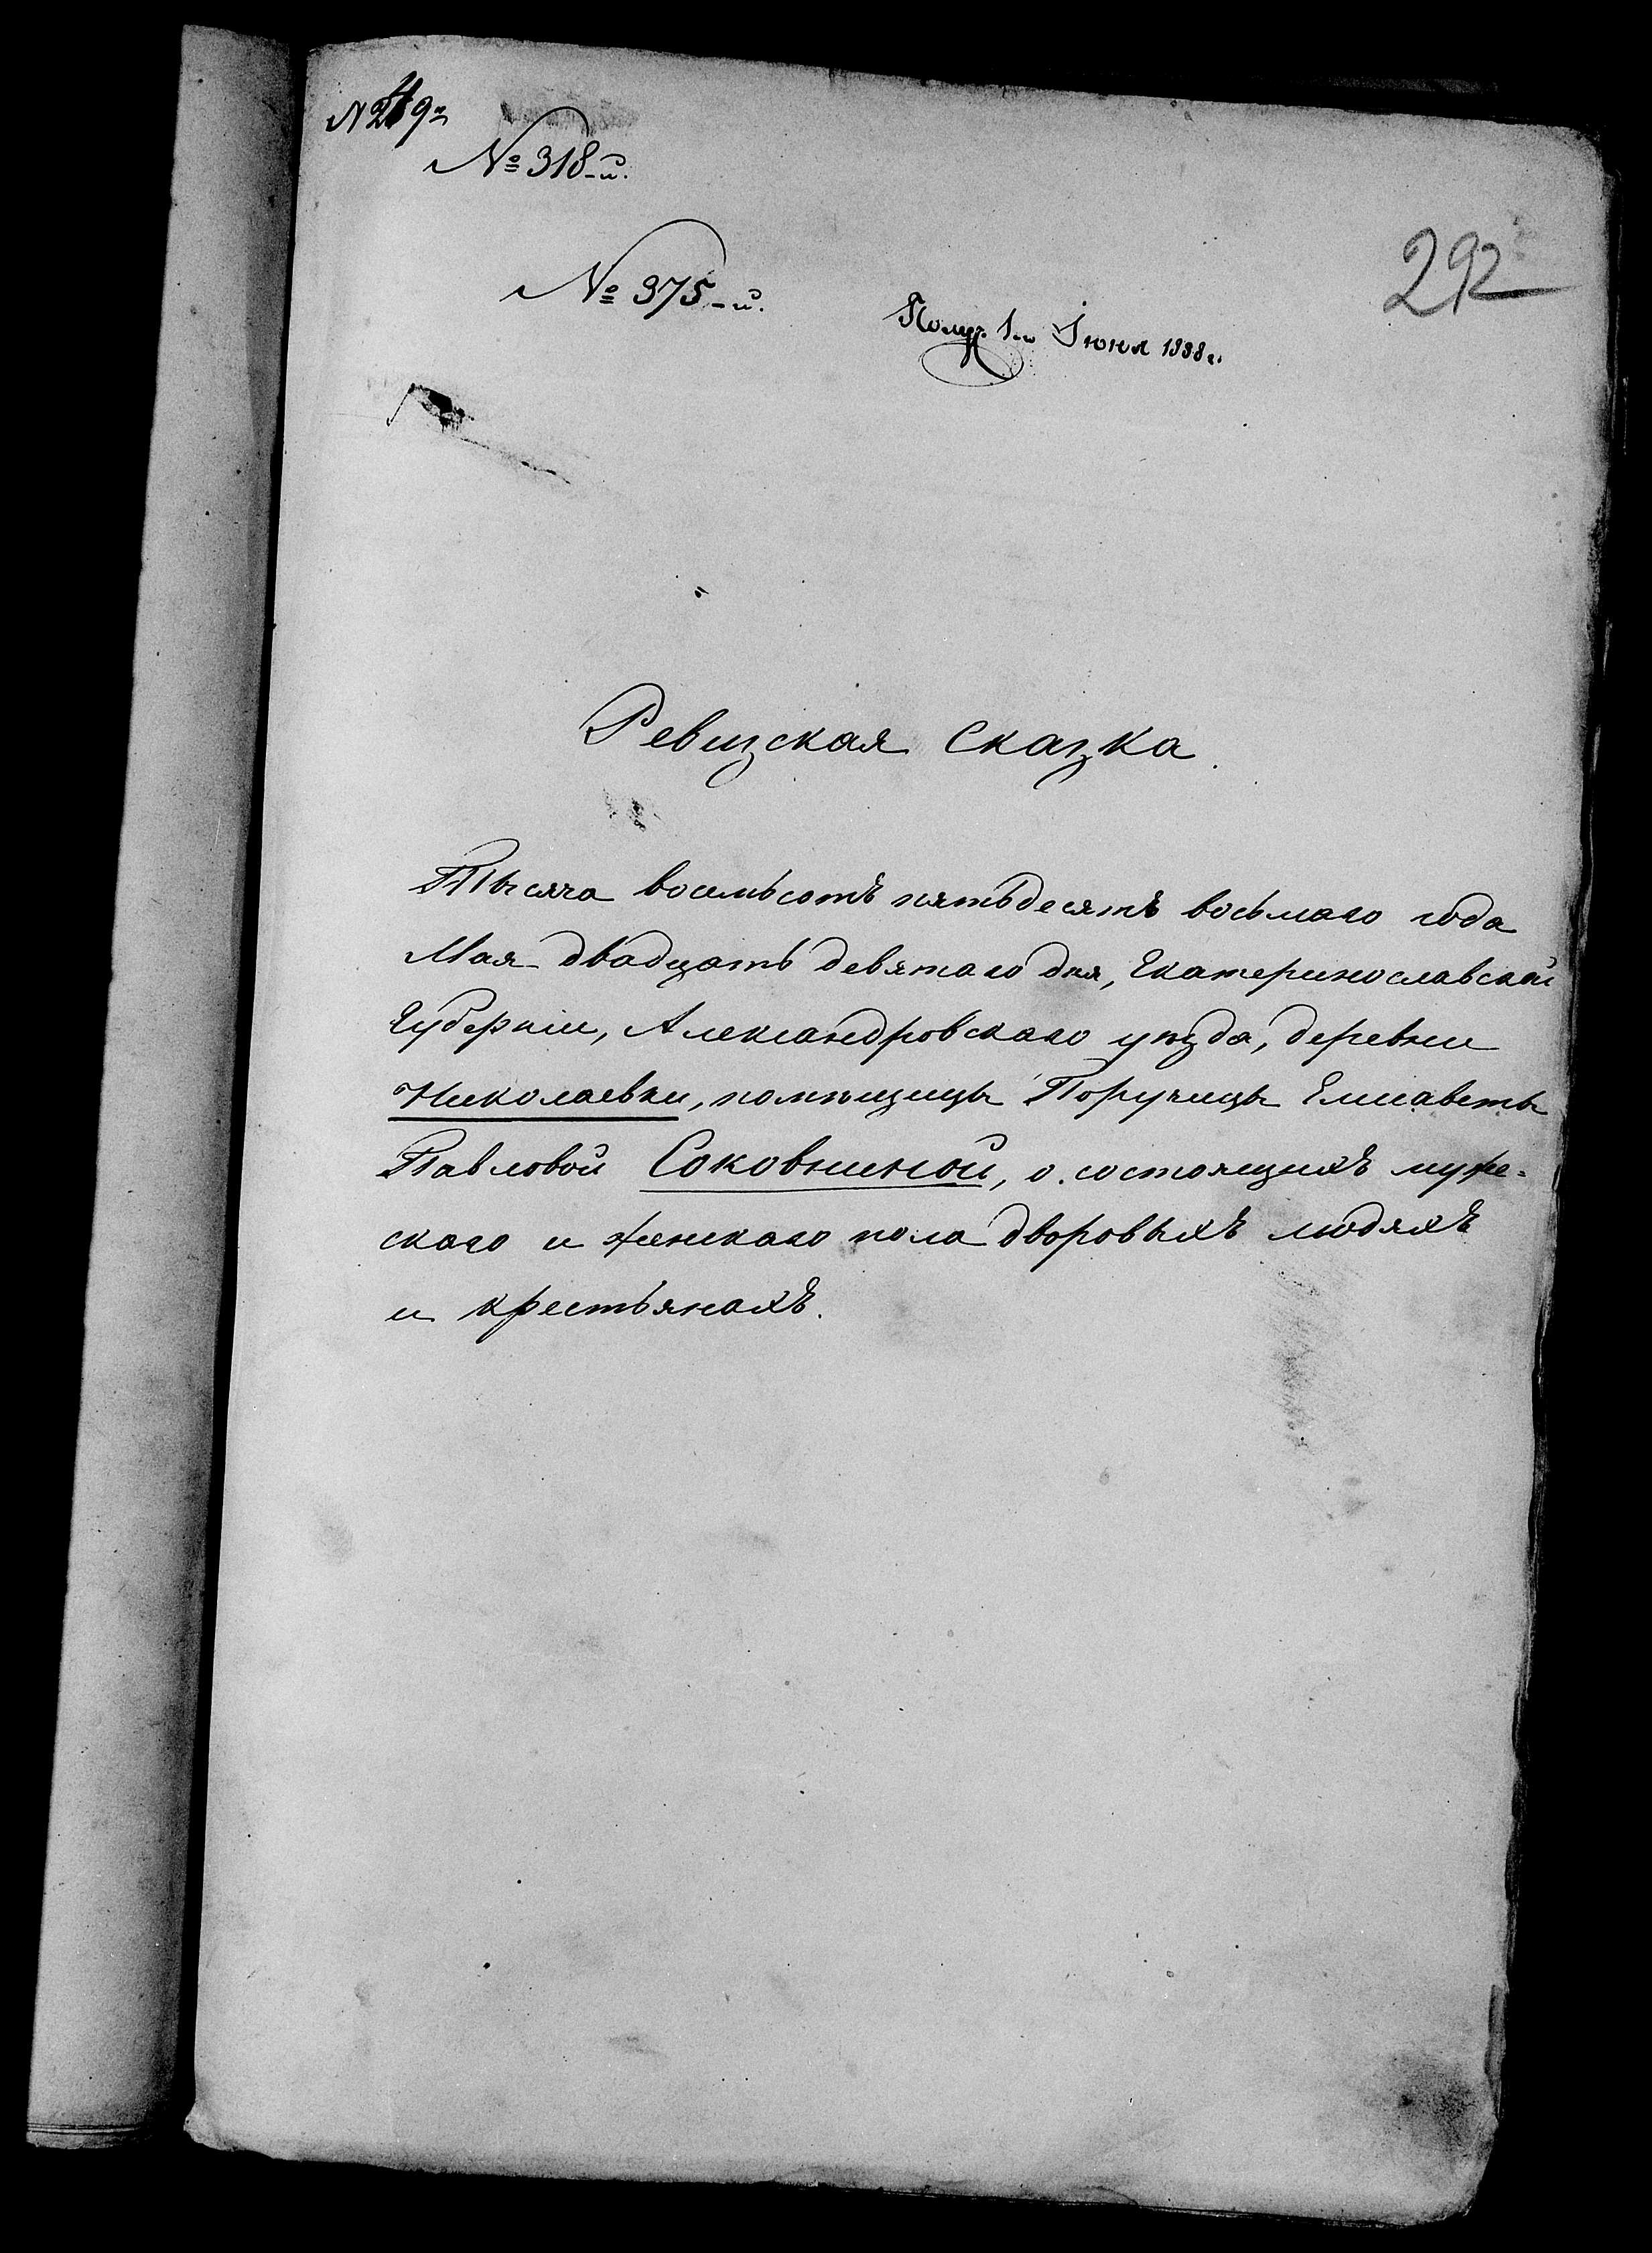 № 318-й.
№ 375-й.
292
Получ. 1го Июня 1858 г.
Ревизская Сказка.
Тысяча восемьсотъ пятьдесятъ восьмаго года
Мая двадцать девятаго дня, Екатеринославской
Губерніи, Александровскаго уѣзда, деревни
Николаевки, помѣщицы Поручицы Елисаветы
Павловой Соковниной, о состоящихъ муже-
скаго и женскаго пола дворовыхъ людяхъ
и крестьянахъ.